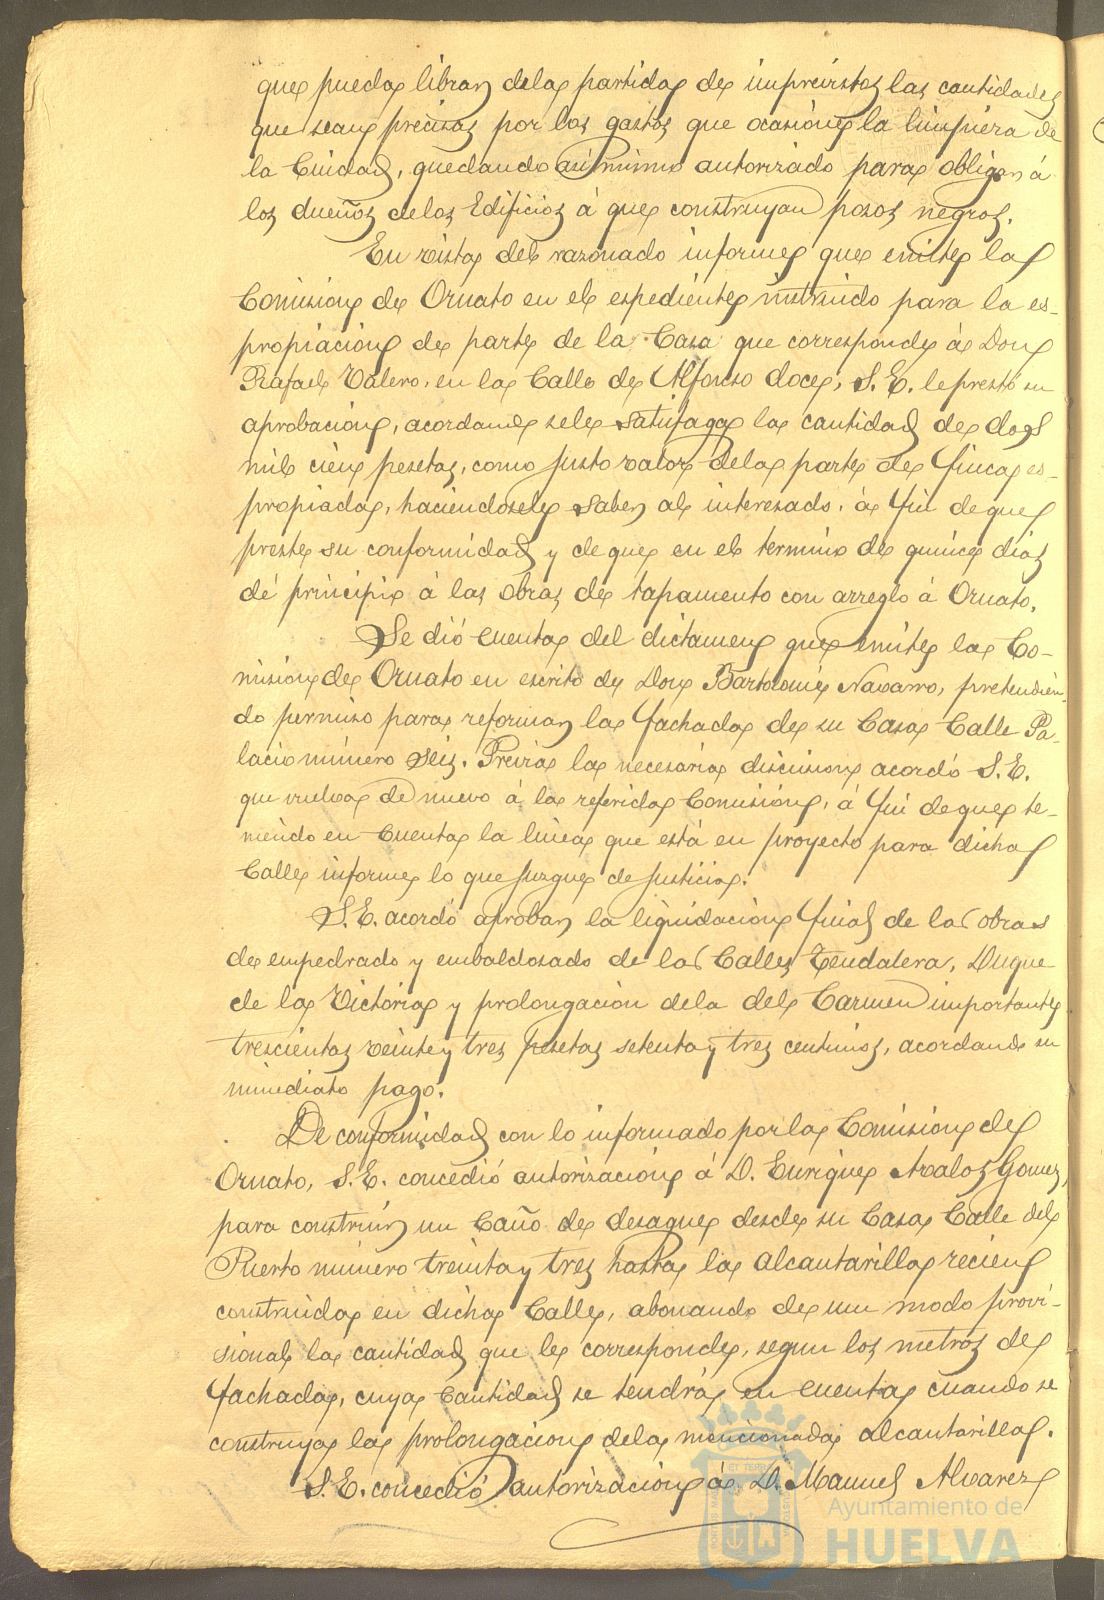 que pueda librar de la partida de imprevistos las cantidades
que sean precisas por los gastos que ocasione la limpieza de
la Ciudad, quedando asimismo autorizado para obligar á
los dueños de los Edificios á que construyan posos negros.
En vista del razonado informe que emite la
Comision de Ornato en el espediente instruido para la es-
propiacion de parte de la Casa que corresponde á Don
Rafael Valero, en la Calle de Alfonso doce, S. E. le prestó su
aprobación, acordando se le satisfaga la cantidad de dos
mil cien pesetas, como justo valor de la parte de finca es-
propiada, haciendosele saber al interesado, á fin de que
preste su conformidad y de que en el termino de quince dias
dé principio á las obras de tapamento con arreglo á Ornato.
Se dió cuenta del dictamen que emite la Co-
mision de Ornato en escrito de Don Bartolomé Navarro, pretendien-
do permiso para reformar la fachada de su Casa Calle Pa-
lacio número seis. Previa la necesaria discusion acordó S. E.
que vuelva de nuevo á la referida Comisión, á fin de que te-
niendo en cuenta la linea que está en proyecto para dicha
Calle informe lo que juzgue de justicia.
S. E. acordó aprobar la liquidación final de las obras
de empedrado y embaldosado de las Calles Tendalera, Duque
de la Victoria y prolongación de la del Carmen importante
trescientas veinte y tres pesetas setenta y tres centimos, acordando su
inmediato pago.
De conformidad con lo informado por la Comision de
Ornato, S. E. concedió autorización á D. Enrique Avalos Gomez,
para construir un Caño de desague desde su Casa Calle del
Puerto número treinta y tres hasta la alcantarilla recien
construida en dicha Calle, abonando de un modo provi-
sional la cantidad que le corresponde, segun los metros de
fachada, cuya cantidad se tendrá en cuenta cuando se
construya la prolongacion de la mencionada alcantarilla.
S. E. concedió autorización á D. Manuel Alvarez
Ayuntamiento de
HUELVA